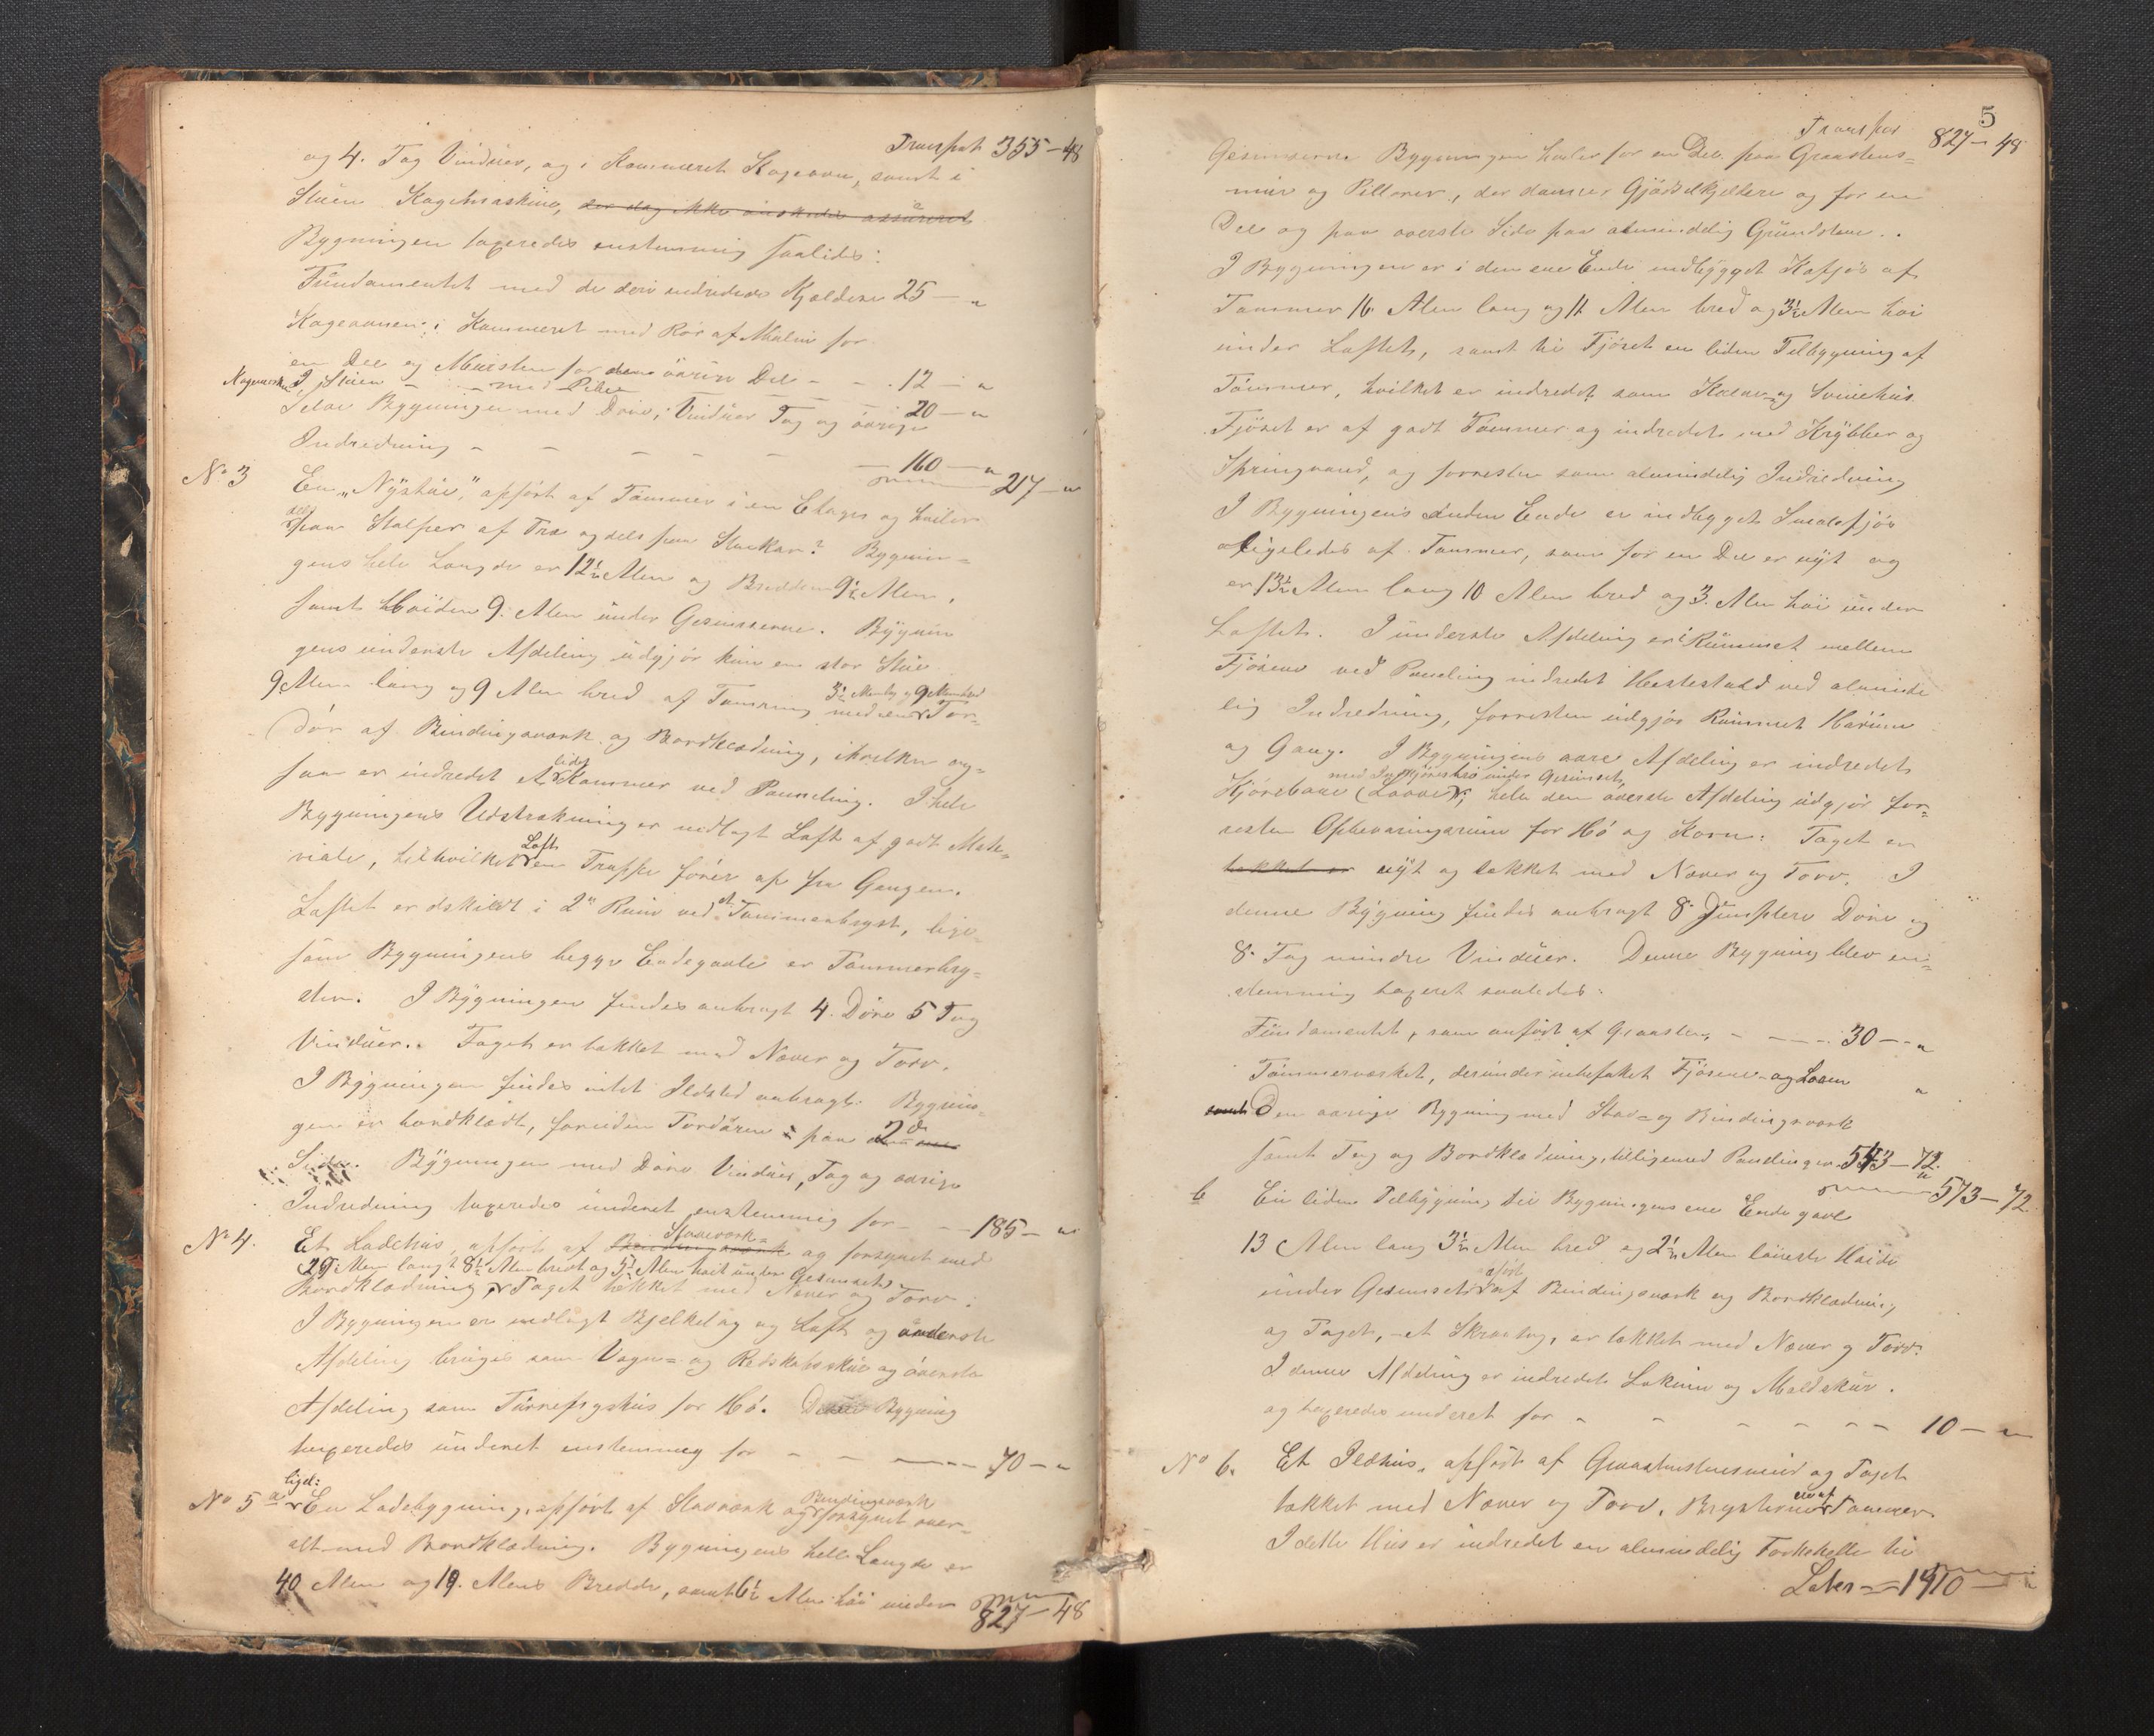 Transport 355-48
og 4. Fag Vinduer, og i Kammeret Kogeovn, samt i
Stuen Kogemaskine, der dog ikke önskedes assureret
Bygningen taxeredes enstemmig saaledes:
Fundamentet med de deri indredede Kjældere 25 — "
Kogeovnen i Kammeret med Rör af Malm for
en Del og Mursten for den övrige Del - - 12 — "
Kogemask. I Stuen - - med Pibe - - - 20 — "
Selve Bygningen med Döre, Vinduer Tag og övrige
Indredning - - - - - 160 — "
217 — "
No 3 En "Nystue", opfört af Tömmer i en Etage og hviler
dels paa Stolper af Træ og dels paa Stokker? Bygnin=
gens hele Længde er 12½ Alen og Bredden 9½ Alen,
samt Höiden 9. Alen under Gesimserne. Bygnin
gens underste Afdeling udgjör kun en stor Stue
9 Alen lang og 9 Alen bred af Tømring med en 3½ Alen lang og 9 Alen bred For=
dör af Bindingsværk og Bordklædning, i hvilken og=
saa er indredet et lidet Kammer ved Paneling. I hele
Bygningens Udstrækning er indlagt Loft af godt Mate=
riale, til hvilket Loft en Trappe förer op fra Gangen.
Loftet er adskildt i 2de Rum ved et Tømmerbryst, lige=
som Bygningens begge Endegavle er Tømmerbry=
ster. I Bygningen findes anbragt 4. Döre 5 Fag
Vinduer. Taget er tækket med Næver og Torv.
I Bygningen findes intet Ildsted anbragt. Bygnin=
gen er bordklædt, foruden Fordören paa 2de
Sider. Bygningen med Döre Vinduer, Tag og övrige
Indredning taxeredes underet enstemmig for - - 185 — "
No 4. Et Ladehus, opfört af Bindingsværk Stavværk og forsynet med
29 Alen langt 8½ Alen bredt og 5½ Alen höit under Gesimset
Bordklædning, Taget tækket med Næver og Torv.
I Bygningen er indlagt Bjelkelag og Loft og underste
Afdeling bruges som Vogn= og Redskabsskur og överste
Afdeling som Törrefrgshus for Hö. Denne Bygning
taxeredes underet enstemmig for - - - 70 — "
No 5 a ligel: En Ladebygning, opfört af Stavværk og Bindingsværk forsynet over=
alt med Bordklædning. Bygningens hele Længde er
40 Alen og 19. Alens Bredde, samt 6½ Alen höi under
827-48
5
Transport 827-48
Gesimserne Bygningen hviler for en Del paa Graastens=
mur og Pillarer, der danner Gjödselkjeldere og for en
Del og paa överste Side paa almindelig Grundstene.
I Bygningen er i den ene Ende indbygget Kofjös af
Tømmer 16 Alen lang og 11 Alen bred og 3½ Alen höi
under Loftet, samt til Fjöset en liden Tilbygning af
Tömmer, hvilket er indredet som Kalve= og Svinehus.
Fjöset er af godt Tömmer og indredet med Krybber og
Springvand, og forresten som almindelig Indredning
I Bygningens anden Ende er indbygget Smalefjös
ligeledes af Tømmer, som for en Del er nyt og
er 13½ Alen lang 10 Alen bred og 3. Alen höi under
Loftet. I underste Afdeling er i Rummet mellem
Fjösene ved Paneling indredet Hestestald ved alminde
lig Indredning, forresten udgjör Rummet Hörum
og Gang. I Bygningens övre Afdeling er indredet
Kjörebane (Laave) med Indkjörelsbro under Gesimset, hele den överste Afdeling udgjör for=
resten Opbevaringsrum for Hö og Korn. Taget er
tækket er nyt og tækket med Næver og Torv. I
denne Bygning findes anbragt 8. Simplere Döre og
8. Fag mindre Vinduer. Denne Bygning blev en=
stemmig taxeret saaledes:
Fundamentet, som anfört af Graasten, - - - 30 — "
Tømmerværket, derunder indbefattet Fjösene og Loen "
samt Den övrige Bygning med Stav= og Bindingsværk
samt Tag og Bordklædning, tilligemed Panelinger. 543-72
573-72
b En liden Tilbygning til Bygningens ene Endegavl
13 Alen lang 3½ Alen bred og 2½ Alen laveste Höide
under Gesimset opfört af Bindingsværk og Bordklædning
og Taget, et Skraatag, er tækket med Næver og Torv.
I denne Afdeling er indredet Lokum og Meldskur.
og taxeredes underet for - - - - - 10 — "
No 6. Et Ildhus, opfört af Graastensmur og Taget
tækket med Næver og Torv. Brysterne ere af Tømmer
I dette Hus er indredet en almindelig Torkehelle til
Lates 1410 — "